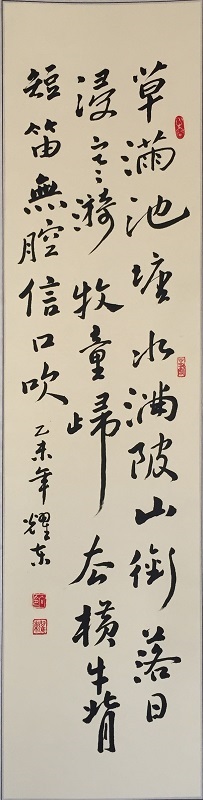 草满池塘水满陂山衔落日
浸寒漪牧童归去横牛背
短笛無腔信口吹
乙未年耀东